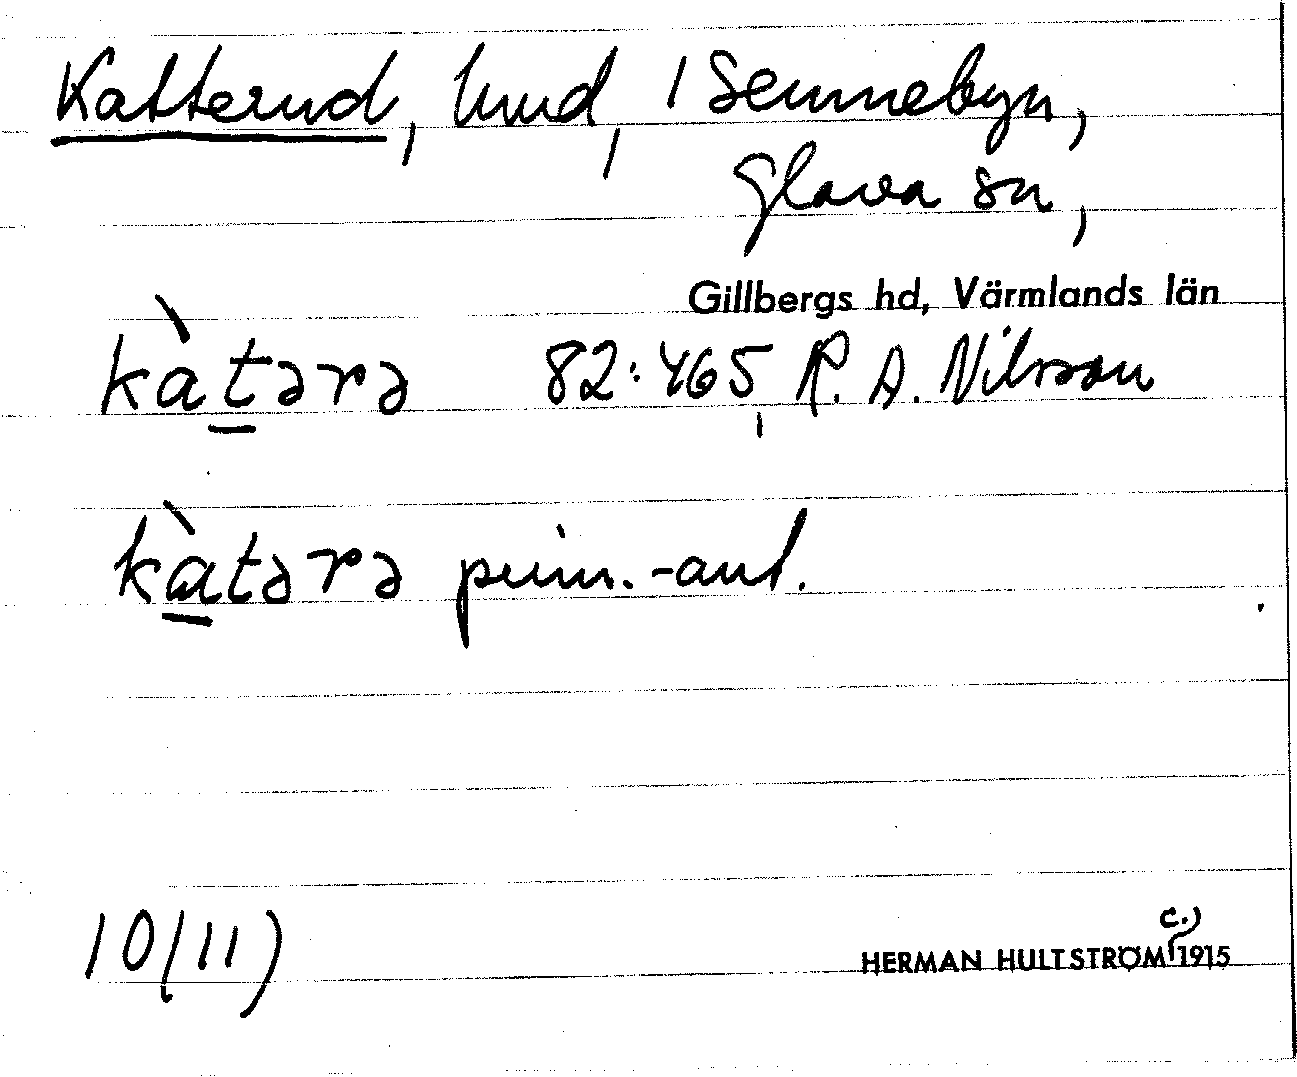 Katterud, hmd, i Sennebyn,
Glava sn,
Gillbergs hd, Värmlands län
kàtərə 82:465, R. A. Nilsson
kàtərə prim.-ant.
10(11)
c.)
HERMAN HULTSTRÖM 1915